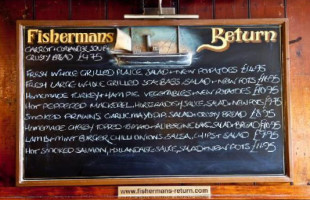 Fishermans Return
CARROT + CORIANDER SOUP +
CRUSTY BREAD £4.75
FRESH WHOLE GRILLED PLAICE SALAD + NEW POTATOES
FRESH LARGE WHOLE GRILLED SEA BASS SALAD + NEW POTS
HOMEMADE TURKEY + HAM PIE, VEGETABLES + NEW POTATOES
HOT PEPPERED MACKEREL, HORSERADISH SAUCE, SALAD + NEW POTS
SMOKED PRAWNS GARLIC MAYO DIP, SALAD + CRUSTY BREAD
HOMEMADE CHEESY TOPPED SALAD
LAMB + MINT BURGER, CHILLI ONIONS, SALSA, CHIPS + SALAD
HOT SMOKED SALMON, SAUCE, SALAD + NEW POTS
www.fishermans-return.com